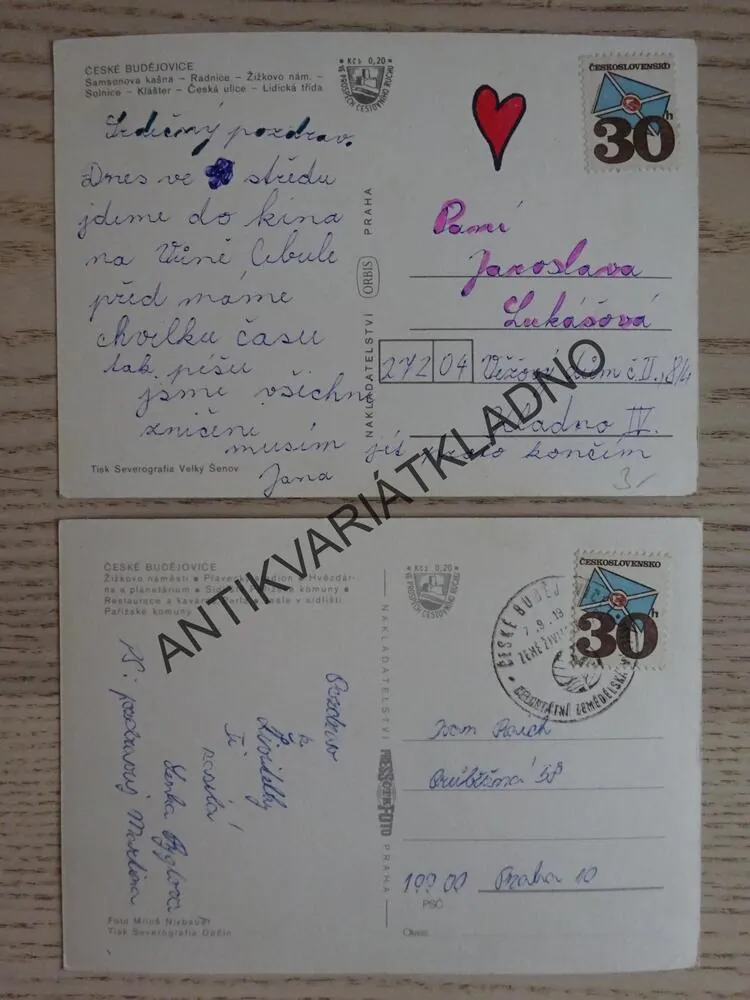 ČESKÉ BUDĚJOVICE
Samsonova kašna – Radnice – Žižkovo nám. –
Solnice – Klášter – Česká ulice – Lidická třída
• Kčs 0,20 •
VE PROSPĚCH CESTOVNÍHO RUCHU
ČESKOSLOVENSKO
30h
Srdečný pozdrav.
Dnes ve středu
jdeme do kina
na Vůně Cibule
před máme
chvilku času
tak píšu
jsme všechny
zničené
musím jít proto končím
Jana
Tisk Severografia Velký Šenov
NAKLADATELSTVÍ ORBIS PRAHA
Paní
Jaroslava
Lukášová
272 04 Věžový dům č. II., 8/4
Kladno IV.
3/-
ANTIKVARIÁTKLADNO
ČESKÉ BUDĚJOVICE
Žižkovo náměstí • Plavecký stadion • Hvězdár-
na a planetárium • Sídliště Pařížské komuny •
Restaurace a kavárna Perla • Jesle v sídlišti
Pařížské komuny
• Kčs 0,20 •
VE PROSPĚCH CESTOVNÍHO RUCHU
ČESKOSLOVENSKO
30h
ČESKÉ BUDĚJ
7.9.19
ZEMĚ ŽIVI
CELOSTÁTNÍ ZEMĚDĚLSKÁ
Pozdrav
z
Ti
posílá
Lenka
pozdravuj Martina
NAKLADATELSTVÍ PRESSFOTO PRAHA
Ivan
Průběžná 58
199 00 Praha 10
PSČ
Okres
Foto Miloš Niebauer
Tisk Severografia Děčín